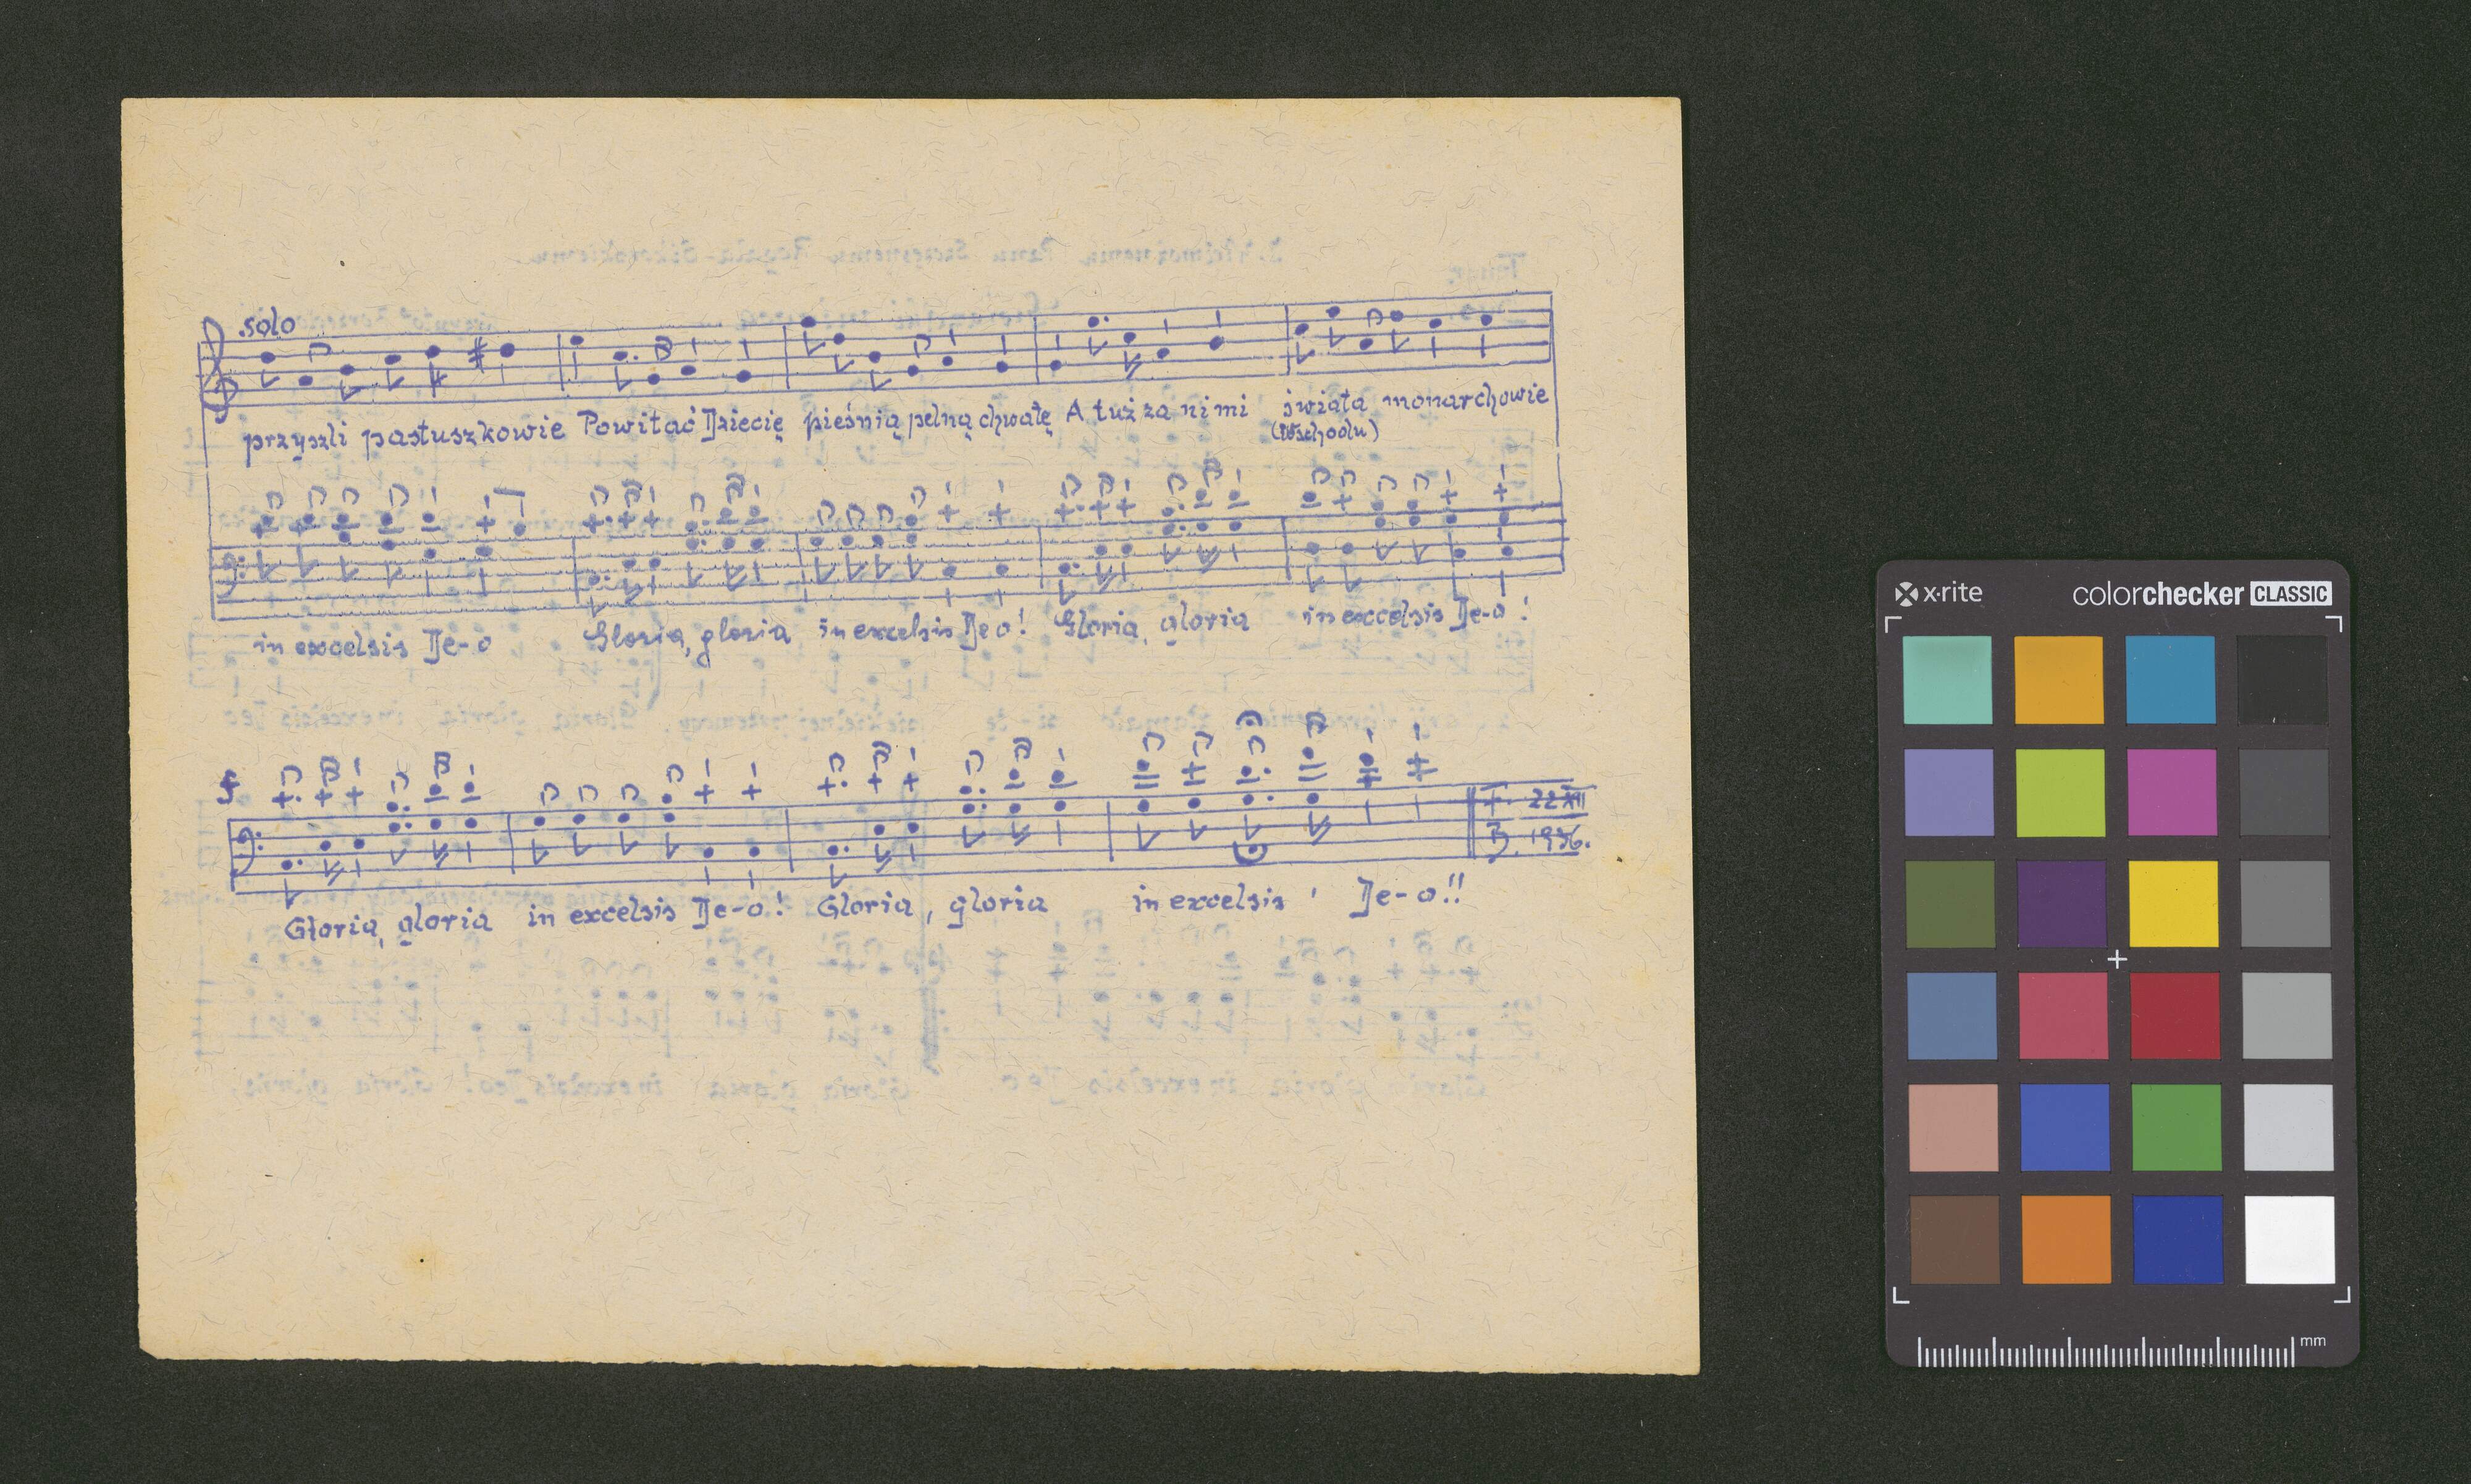 solo
przyszli pastuszkowie Powitać Dziecię pieśnią pełną chwałę A tuż za nimi świata monarchowie
(Wschodu)
in excelsis De-o Gloria, gloria in excelsis Deo! Gloria, gloria in excelsis De-o!
f
22 XII
1936.
Gloria, gloria in excelsis De-o! Gloria, gloria in excelsis De-o!!
x·rite colorchecker CLASSIC
mm